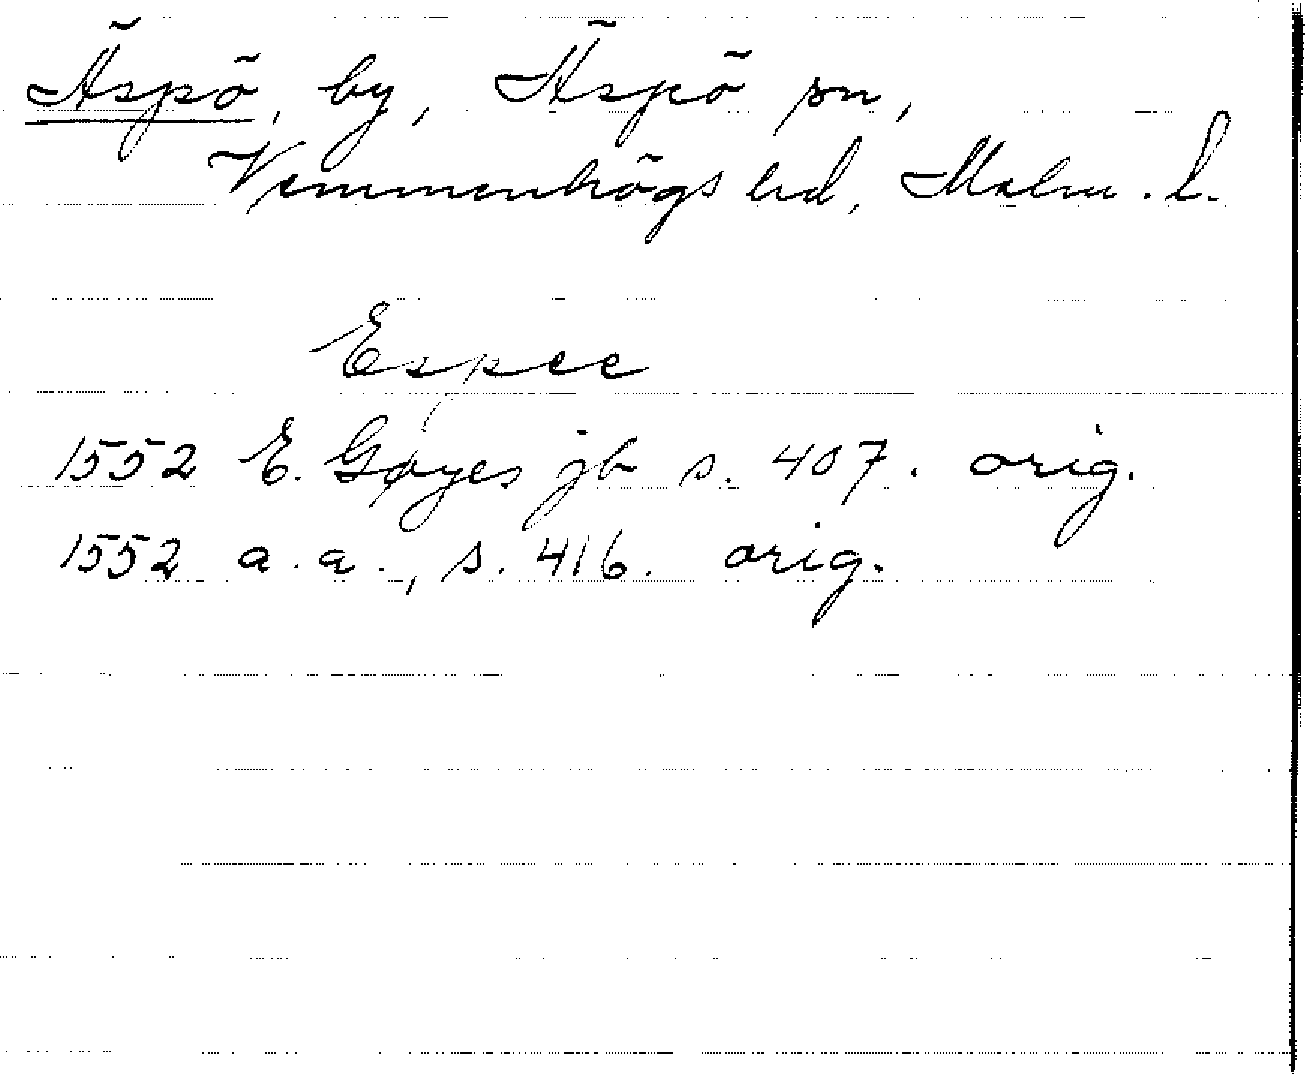 Äspö, by, Äspö sn,
Vemmenhögs hd, Malm. l.
Espee
1552 E. Gøyes jb s. 407. orig.
1552 a. a., s. 416. orig.